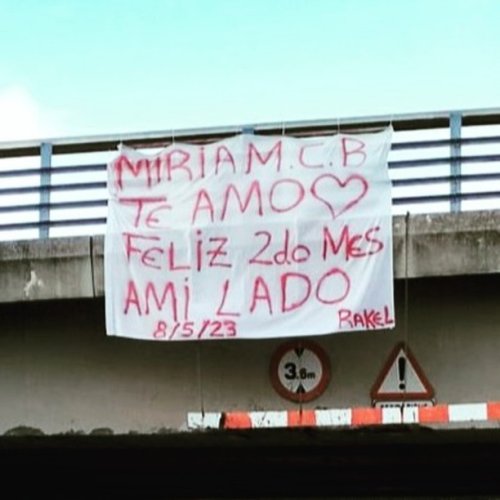 MIRIAM.C.B
TE AMO♡
FELIZ 2do MES
AMi LADO
8/5/23 RAKEL
3.8m